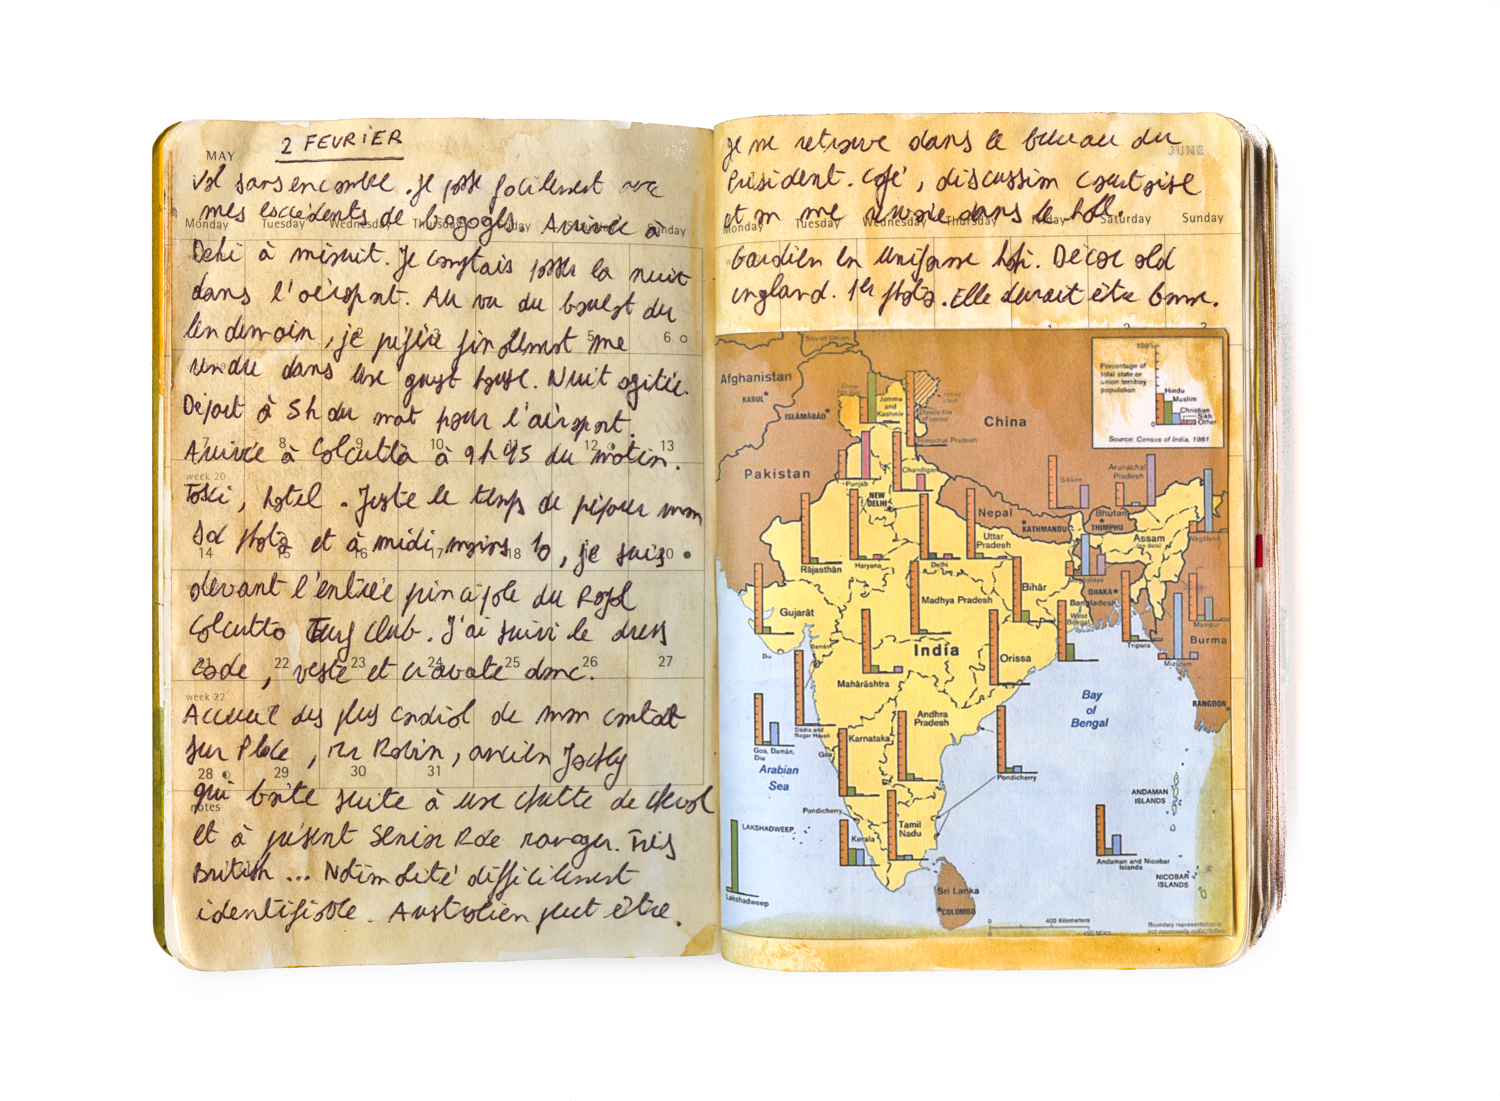 2 FEVRIER
MAY
Vol sans encombre. Je passe facilement avec
mes excédents de bagages. Arrivée à
Monday Tuesday Wednesday Thursday Sunday
Dehi à minuit. Je comptais passer la nuit
dans l'aéroport. Au vu du boulot du
lendemain, je préfère finalement me
5 6
rendre dans une guest house. Nuit agitée.
Départ à 5h du mat pour l'aéroport.
7 8 9 10 11 12 13
Arrivée à Calcutta à 9h45 du matin.
week 20
Taxi, hotel. Juste le temps de préparer mon
sac photo et à midi moins 10, je suis
14 15 16 17 18 20
devant l'entrée principale du Royal
Calcutta Turf Club. J'ai suivi le dress
code, veste et cravate donc.
21 22 23 24 25 26 27
week 22
Accueil des plus cordial de mon contact
sur Place, Robin, ancien Jockey
28 29 30 31
qui boite suite à une chutte de cheval
notes
et à présent Senior Race manager. Très
British ... Nationalité difficilement
identifiable. Australien peut être.
Je me retrouve dans le bureau du
JUNE
Président. Café, discussion courtoise
et on me amène dans le hall.
Monday Tuesday Wednesday Thursday Friday Saturday Sunday
Gardien en uniforme kaki. Décor old
england. 1ère photo. Elle devrait être bonne.
1 2 3
Soviet Union
Afghanistan
KABUL
ISLĀMĀBĀD
Jammu
and
Kashmir
China
Himachal Pradesh
Pakistan
Punjab
Chandigarh
NEW
DELHI
Nepal
KATHMANDU
Sikkim
Arunachal
Pradesh
Bhutan
THIMPHU
Assam
(no data)
Nāgāland
Rājasthān
Haryana
Delhi
Uttar
Pradesh
Meghalaya
Bihār
DHAKA
Bangladesh
West
Bengal
Gujarāt
Madhya Pradesh
Tripura
Manipur
Burma
Mizoram
India
Diu
Damān
Orissa
Mahārāshtra
Dadra and
Nagar Haveli
Goa, Damān,
Diu
Goa
Andhra
Pradesh
Karnataka
Bay
of
Bengal
RANGOON
Arabian
Sea
Pondicherry
Pondicherry
LAKSHADWEEP
Kerala
Tamil
Nadu
ANDAMAN
ISLANDS
Andaman and Nicobar
Islands
NICOBAR
ISLANDS
Lakshadweep
Sri Lanka
COLOMBO
0 400 Kilometers
0 400 Miles
Boundary representation is
not necessarily authoritative.
100%
Percentage of
total state or
union territory
population
0
Hindu
Muslim
Christian
Sikh
Other
Source: Census of India, 1981